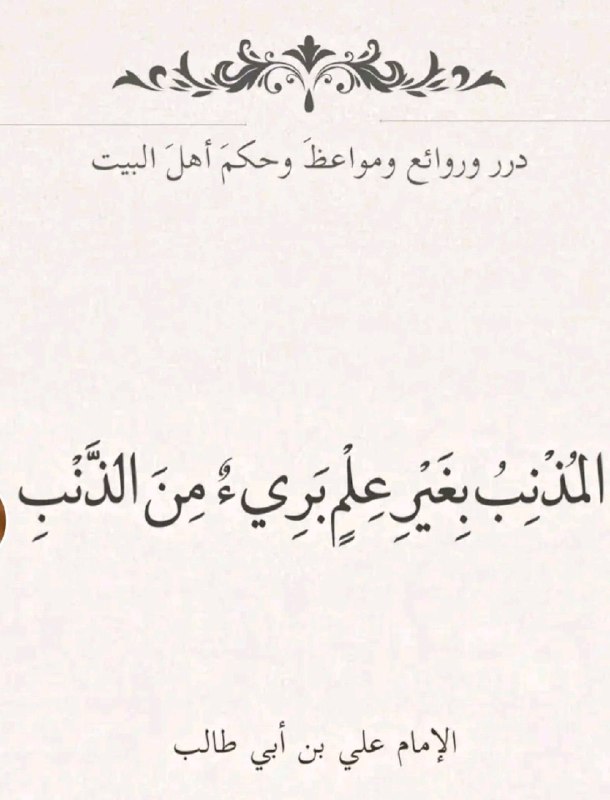 درر وروائع ومواعظَ وحكمَ أهلَ البيت
المُذْنِبُ بِغَيْرِ عِلْمٍ بَرِيءٌ مِنَ الذَّنْبِ
الإمام علي بن أبي طالب